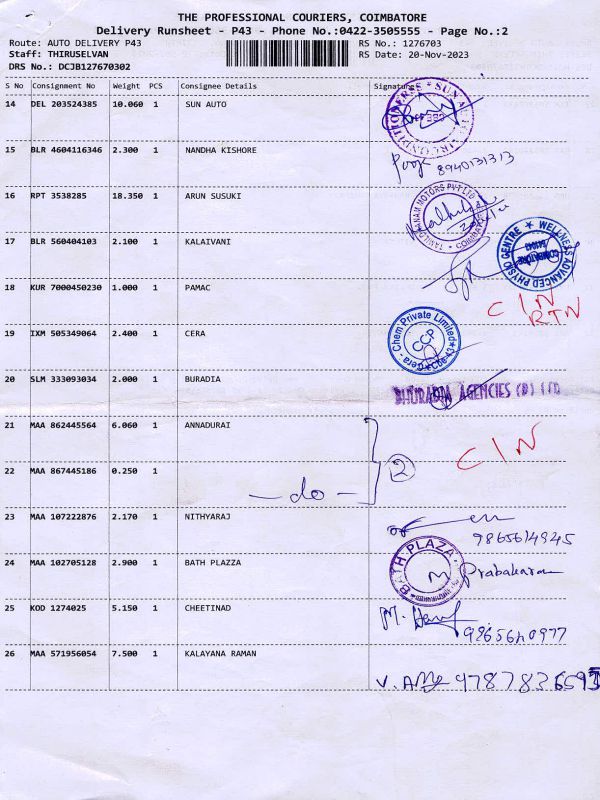 THE PROFESSIONAL COURIERS, COIMBATORE
Delivery Runsheet - P43 - Phone No.:0422-3505555 - Page No.:2
Route: AUTO DELIVERY P43 RS No.: 1276703
Staff: THIRUSELVAN RS Date: 20-Nov-2023
DRS No.: DCJB127670302
S No Consignment No Weight PCS Consignee Details Signature
14 DEL 203524385 10.060 1 SUN AUTO
15 BLR 4604116346 2.300 1 NANDHA KISHORE
8940131313
16 RPT 3538285 18.350 1 ARUN SUSUKI
TAMILDHANAM MOTORS PVT LTD
17 BLR 560404103 2.100 1 KALAIVANI
WELLNESS ADVANCED PHYSIO CENTRE
COIMBATORE
18 KUR 7000450230 1.000 1 PAMAC
CIN
RTN
19 IXM 505349064 2.400 1 CERA
Cera-Chem Private Limited
CCP
20 SLM 333093034 2.000 1 BURADIA
BHURADIA AGENCIES (P) LTD
21 MAA 862445564 6.060 1 ANNADURAI
CIN
22 MAA 867445186 0.250 1
- do - 2
23 MAA 107222876 2.170 1 NITHYARAJ
9865614945
24 MAA 102705128 2.900 1 BATH PLAZZA
BATH PLAZA
Prabakaran
25 KOD 1274025 5.150 1 CHEETINAD
26 MAA 571956054 7.500 1 KALAYANA RAMAN